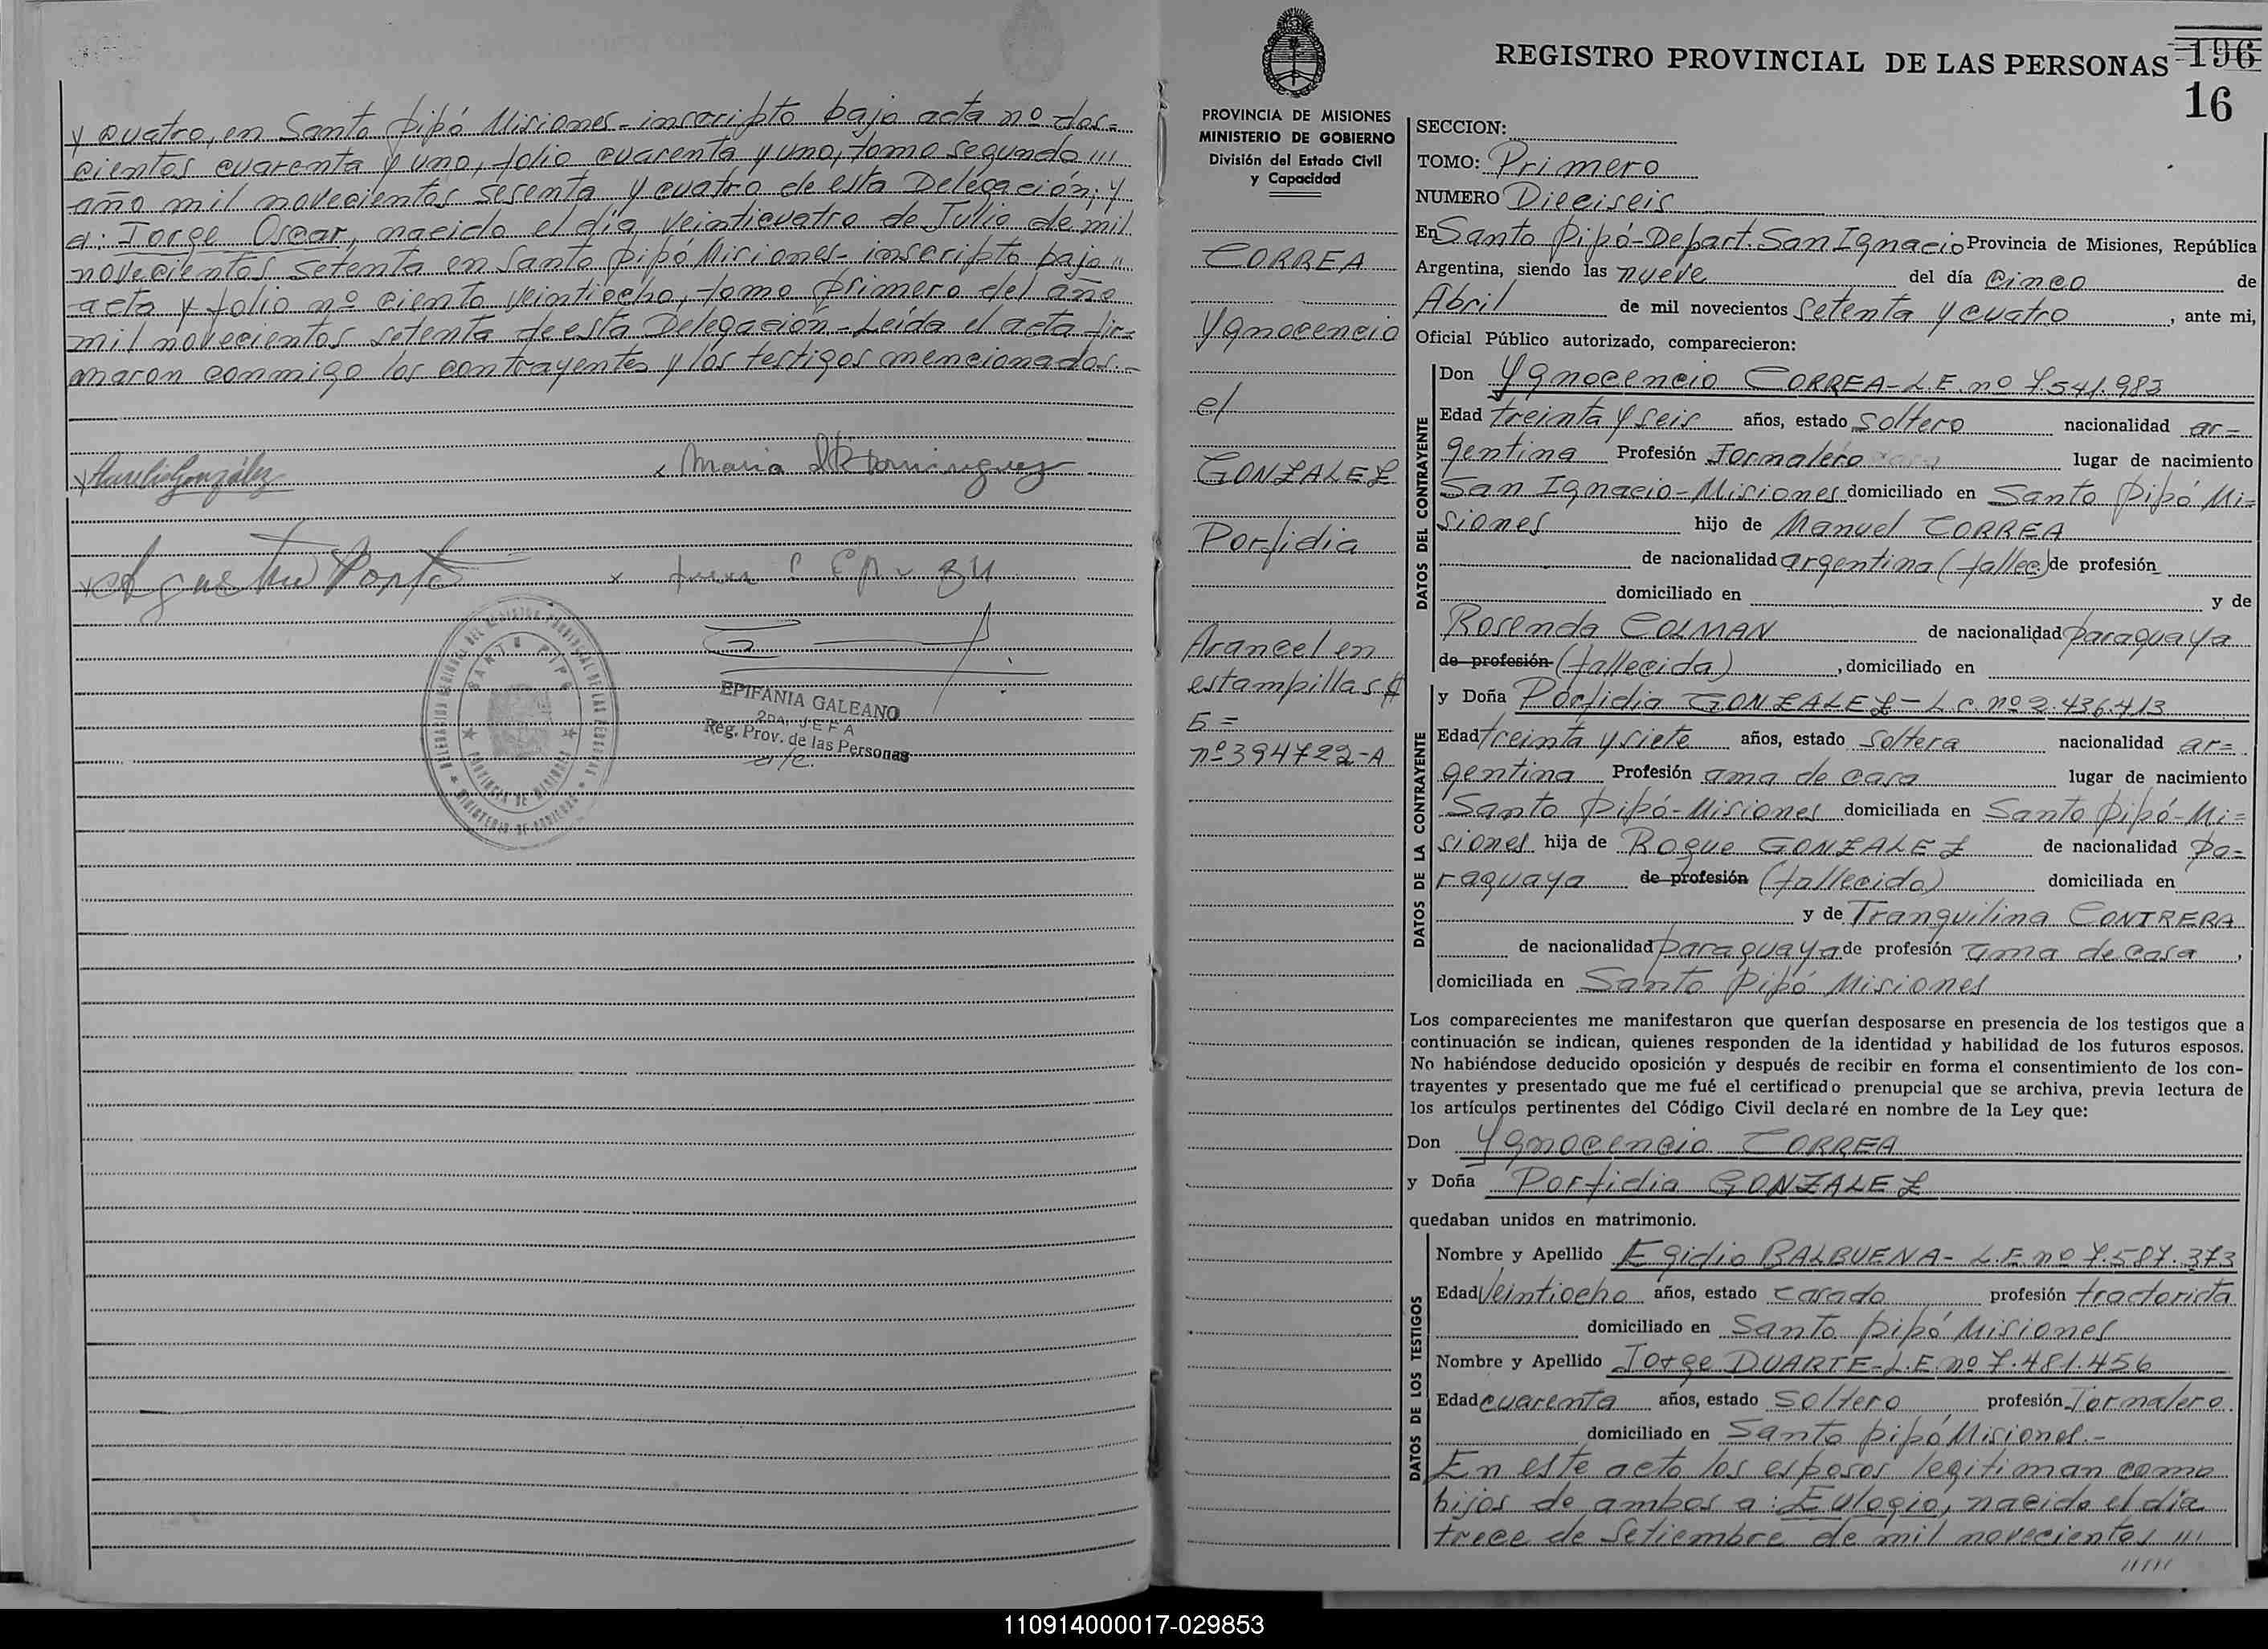 y cuatro, en Santo Pipó Misiones - inscripto bajo acta nº dos=
cientos cuarenta y uno, folio cuarenta y uno, tomo segundo ///
año mil novecientos sesenta y cuatro de esta Delegación; y
a: Jorge Oscar, nacido el día veinticuatro de Julio de mil
novecientos setenta en Santo Pipó Misiones - inscripto bajo "
acta y folio nº ciento veintiocho, tomo primero del año
mil novecientos setenta de esta Delegación - Leída el acta fir=
maron conmigo los contrayentes y los testigos mencionados.-
Aurelio González
x Maria Dominguez
EPIFANIA GALEANO
2DA. JEFA
Reg. Prov. de las Personas
SANTO PIPO
PROVINCIA DE MISIONES
REGISTRO PROVINCIAL DE LAS PERSONAS
196
16
PROVINCIA DE MISIONES
MINISTERIO DE GOBIERNO
División del Estado Civil
y Capacidad
CORREA
Ygnocencio
el
GONZALEZ
Porfidia
Arancel en
estampillas $
5=
nº 394722-A
SECCION:
TOMO: Primero
NUMERO Dieciseis
En Santo Pipó - Depart. San Ignacio Provincia de Misiones, República
Argentina, siendo las nueve del día cinco de
Abril de mil novecientos Setenta y cuatro, ante mi,
Oficial Público autorizado, comparecieron:
DATOS DEL CONTRAYENTE
Don Ygnocencio CORREA - L.E. nº 7.541.983
Edad treinta y seis años, estado soltero nacionalidad ar=
gentina Profesión Jornalero lugar de nacimiento
San Ignacio - Misiones domiciliado en Santo Pipó Mi=
siones hijo de Manuel CORREA
de nacionalidad argentina (fallec.) de profesión
domiciliado en y de
Rosenda COLMAN de nacionalidad paraguaya
de profesión (fallecida), domiciliado en
DATOS DE LA CONTRAYENTE
y Doña Porfidia GONZALEZ - L.C. nº 2.436.413
Edad treinta y siete años, estado Soltera nacionalidad ar=
gentina Profesión ama de casa lugar de nacimiento
Santo Pipó - Misiones domiciliada en Santo Pipó - Mi=
siones hija de Roque GONZALEZ de nacionalidad pa=
raguaya de profesión (fallecido) domiciliada en
y de Tranquilina CONTRERA
de nacionalidad paraguaya de profesión ama de casa,
domiciliada en Santo Pipó Misiones
Los comparecientes me manifestaron que querían desposarse en presencia de los testigos que a
continuación se indican, quienes responden de la identidad y habilidad de los futuros esposos.
No habiéndose deducido oposición y después de recibir en forma el consentimiento de los con-
trayentes y presentado que me fué el certificado prenupcial que se archiva, previa lectura de
los artículos pertinentes del Código Civil declaré en nombre de la Ley que:
Don Ygnocencio CORREA
y Doña Porfidia GONZALEZ
quedaban unidos en matrimonio.
DATOS DE LOS TESTIGOS
Nombre y Apellido Egidio BALBUENA - L.E. nº 7.587.373
Edad Veintiocho años, estado casado profesión tractorista
domiciliado en Santo Pipó Misiones
Nombre y Apellido Jorge DUARTE - L.E. nº 7.481.456
Edad cuarenta años, estado Soltero profesión Jornalero
domiciliado en Santo Pipó Misiones.-
En este acto los esposos legitiman como
hijos de ambos a: Eulogio, nacido el día
trece de Setiembre de mil novecientos ///
/////
110914000017-029853